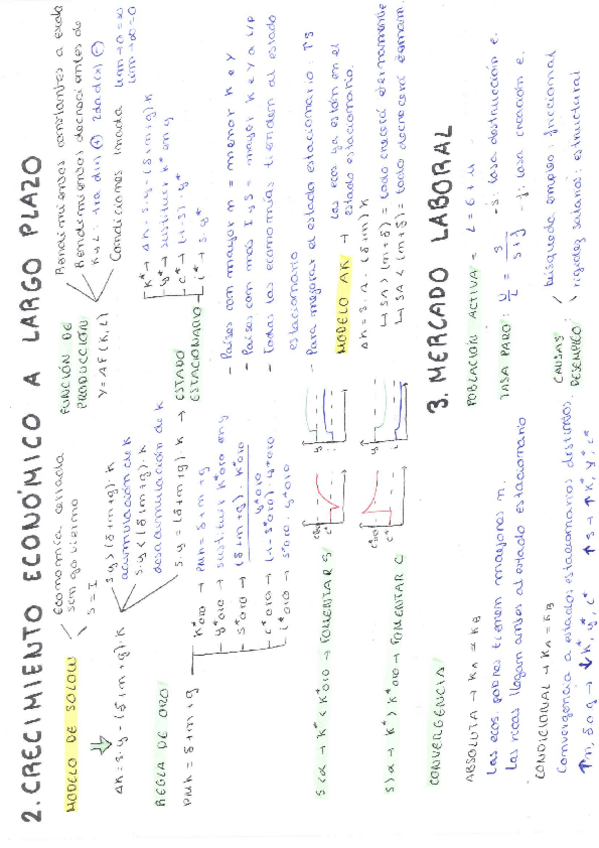 2. CRECIMIENTO ECONÓMICO A LARGO PLAZO
MODELO DE SOLOW
Economía cerrada
sin gobierno
S = I
Δk = s·y - (δ+m+g)·k
s·y > (δ+m+g)·k
acumulación de k
s·y < (δ+m+g)·k
desacumulación de k
s·y = (δ+m+g)·k → ESTADO ESTACIONARIO
REGLA DE ORO
PMk = δ+m+g
k*oro → PMk = δ+m+g
y*oro → sustituir k*oro en y
s*oro → (δ+m+g)·k*oro
y*oro
c*oro → (1-s*oro)·y*oro
i*oro → s*oro·y*oro
s < α → k* < k*oro → FOMENTAR S
s > α → k* > k*oro → FOMENTAR C
CONVERGENCIA
ABSOLUTA → kA = kB
Las ecos. pobres tienen mayores n.
Las ricas llegan antes al estado estacionario
CONDICIONAL → kA = kB
Convergencia a estados estacionarios distintos.
↑n, δ o g → ↓k*, y*, c*
↑s → ↑k*, y*, c*
FUNCIÓN DE
PRODUCCIÓN
Y = AF(K,L)
Rendimientos constantes a escala
Rendimientos decrecientes de
K y L: 1ra div ⊕ 2da div ⊖
Condiciones Inada
k* → Δk = s·y - (δ+m+g)·k
y* → sustituir k* en y
c* → (1-s)·y*
i* → s·y*
- Países con mayor n = menor k e y
- Países con más I y S = mayor k e y a L/P
- Todas las economías tienden al estado
estacionario
- Para mejorar el estado estacionario: ↑S
MODELO AK →
Las ecos ya están en el
estado estacionario.
Δk = s·A - (δ+m)k
↳ sA > (m+δ) = todo crecerá eternamente
↳ sA < (m+δ) = todo decrecerá eternam.
3. MERCADO LABORAL
POBLACIÓN ACTIVA = L = E + U
TASA PARO: U/L = s/(s+f)
- s: tasa destrucción e.
- f: tasa creación e.
CAUSAS
DESEMPLEO:
búsqueda empleo: friccional
rigidez salarial: estructural